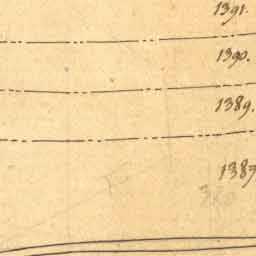 1391.
1390.
1389.
1387
380